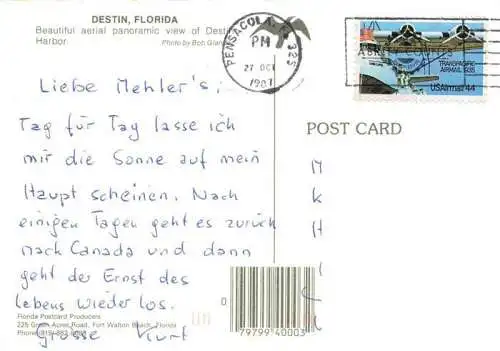 DESTIN, FLORIDA
Beautiful aerial panoramic view of Destin
Harbor. Photo by Bob
PENSACOLA, FL 325
PM
27 OCT
1987
TRANSPACIFIC
AIRMAIL 1935
USAirmail 44
Liebe Mehler's;
Tag für Tag lasse ich
mir die Sonne auf mein
Haupt scheinen. Nach
einigen Tagen geht es zurück
nach Canada und dann
geht der Ernst des
Lebens wieder los.
Grüsse Kurt
POST CARD
M
K
H
0
79799 40003
Florida Postcard Producers
225 Green Acres Road, Fort Walton Beach, Florida
Phone (